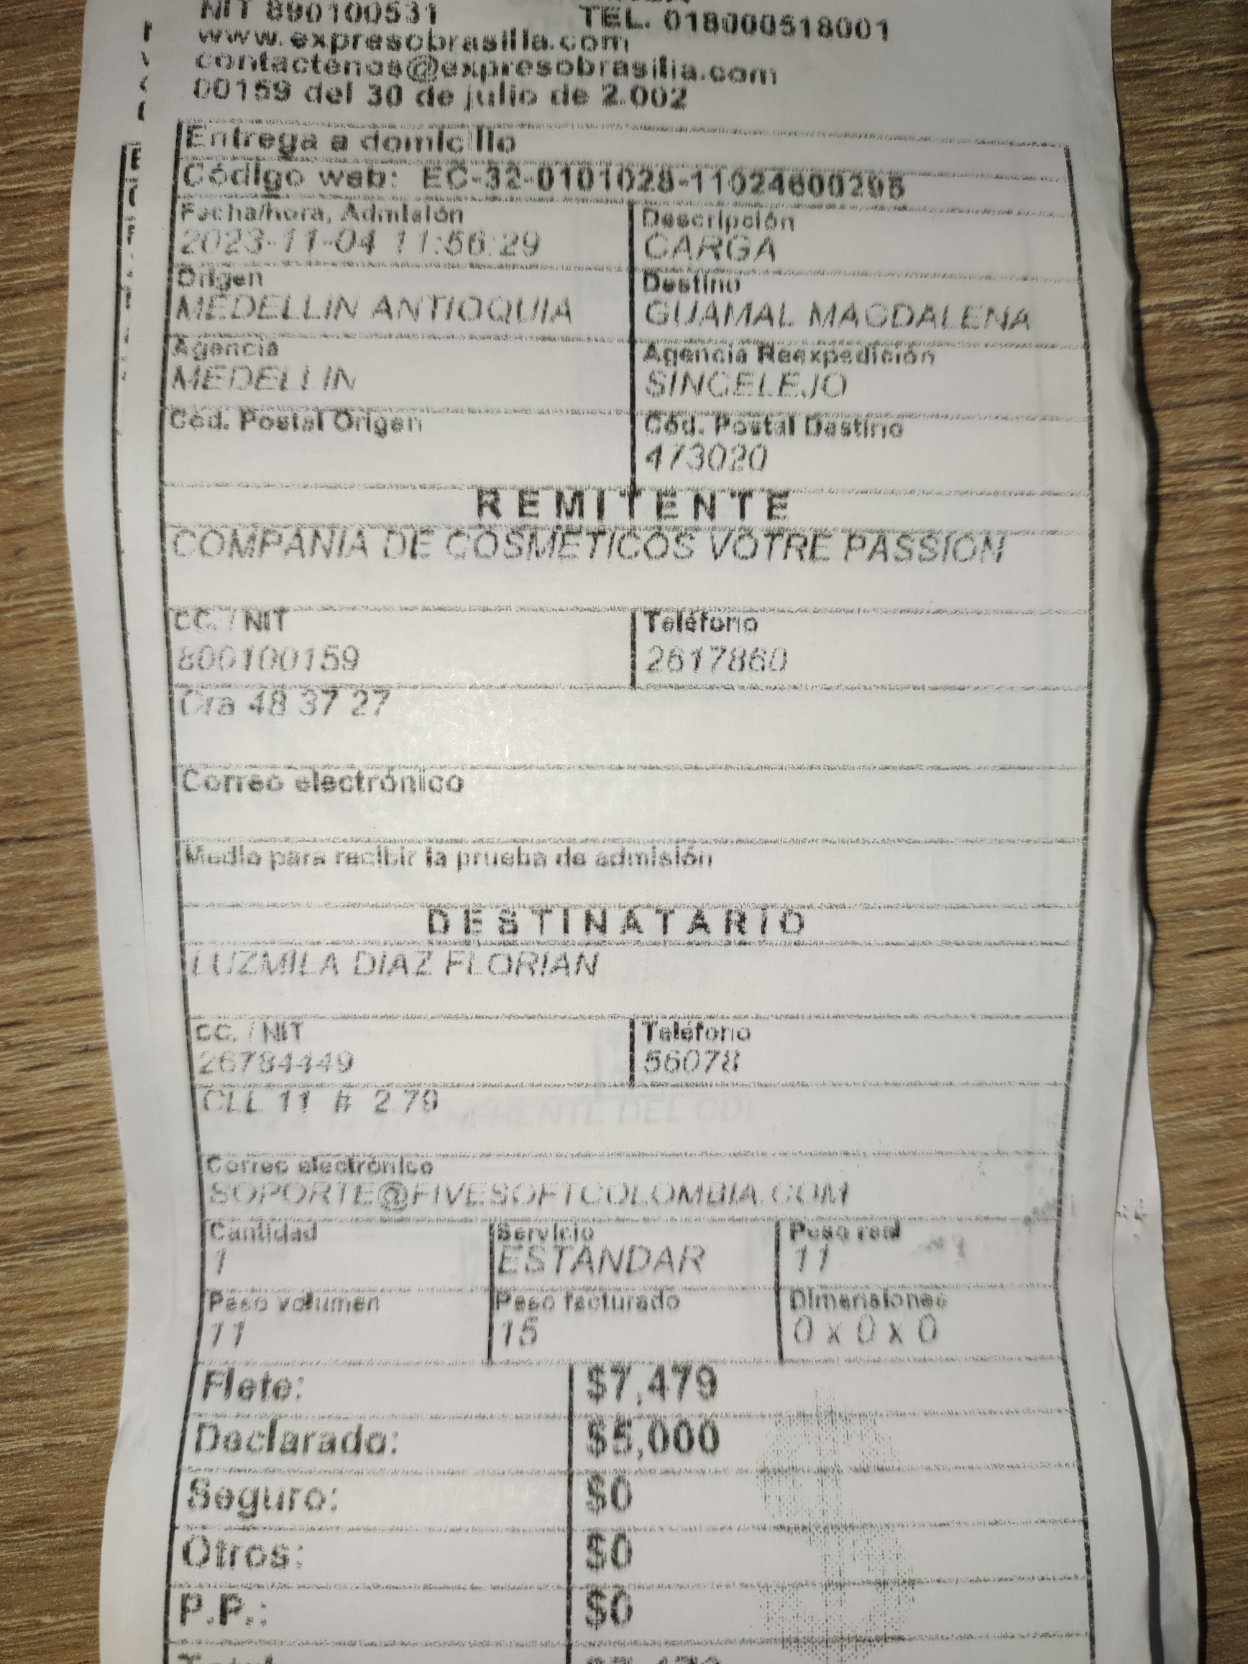 NIT 890100531 TEL. 018000518001
www.expresobrasilia.com
contactenos@expresobrasilia.com
00159 del 30 de julio de 2.002
Entrega a domicilio
Código web: EC-32-0101028-11024600295
Fecha/hora, Admisión Descripción
2023-11-04 11:56:29 CARGA
Origen Destino
MEDELLIN ANTIOQUIA GUAMAL MAGDALENA
Agencia Agencia Reexpedición
MEDELLIN SINCELEJO
Cód. Postal Origen Cód. Postal Destino
473020
REMITENTE
COMPANIA DE COSMETICOS VOTRE PASSION
CC. / NIT Teléfono
800100159 2617860
Cra 48 37 27
Correo electrónico
Medio para recibir la prueba de admisión
DESTINATARIO
LUZMILA DIAZ FLORIAN
CC. / NIT Teléfono
26784449 56078
CLL 11 # 2 79
Correo electrónico
SOPORTE@FIVESOFTCOLOMBIA.COM
Cantidad Servicio Peso real
1 ESTANDAR 11
Peso volumen Peso facturado Dimensiones
11 15 0 x 0 x 0
Flete: $7,479
Declarado: $5,000
Seguro: $0
Otros: $0
P.P.: $0